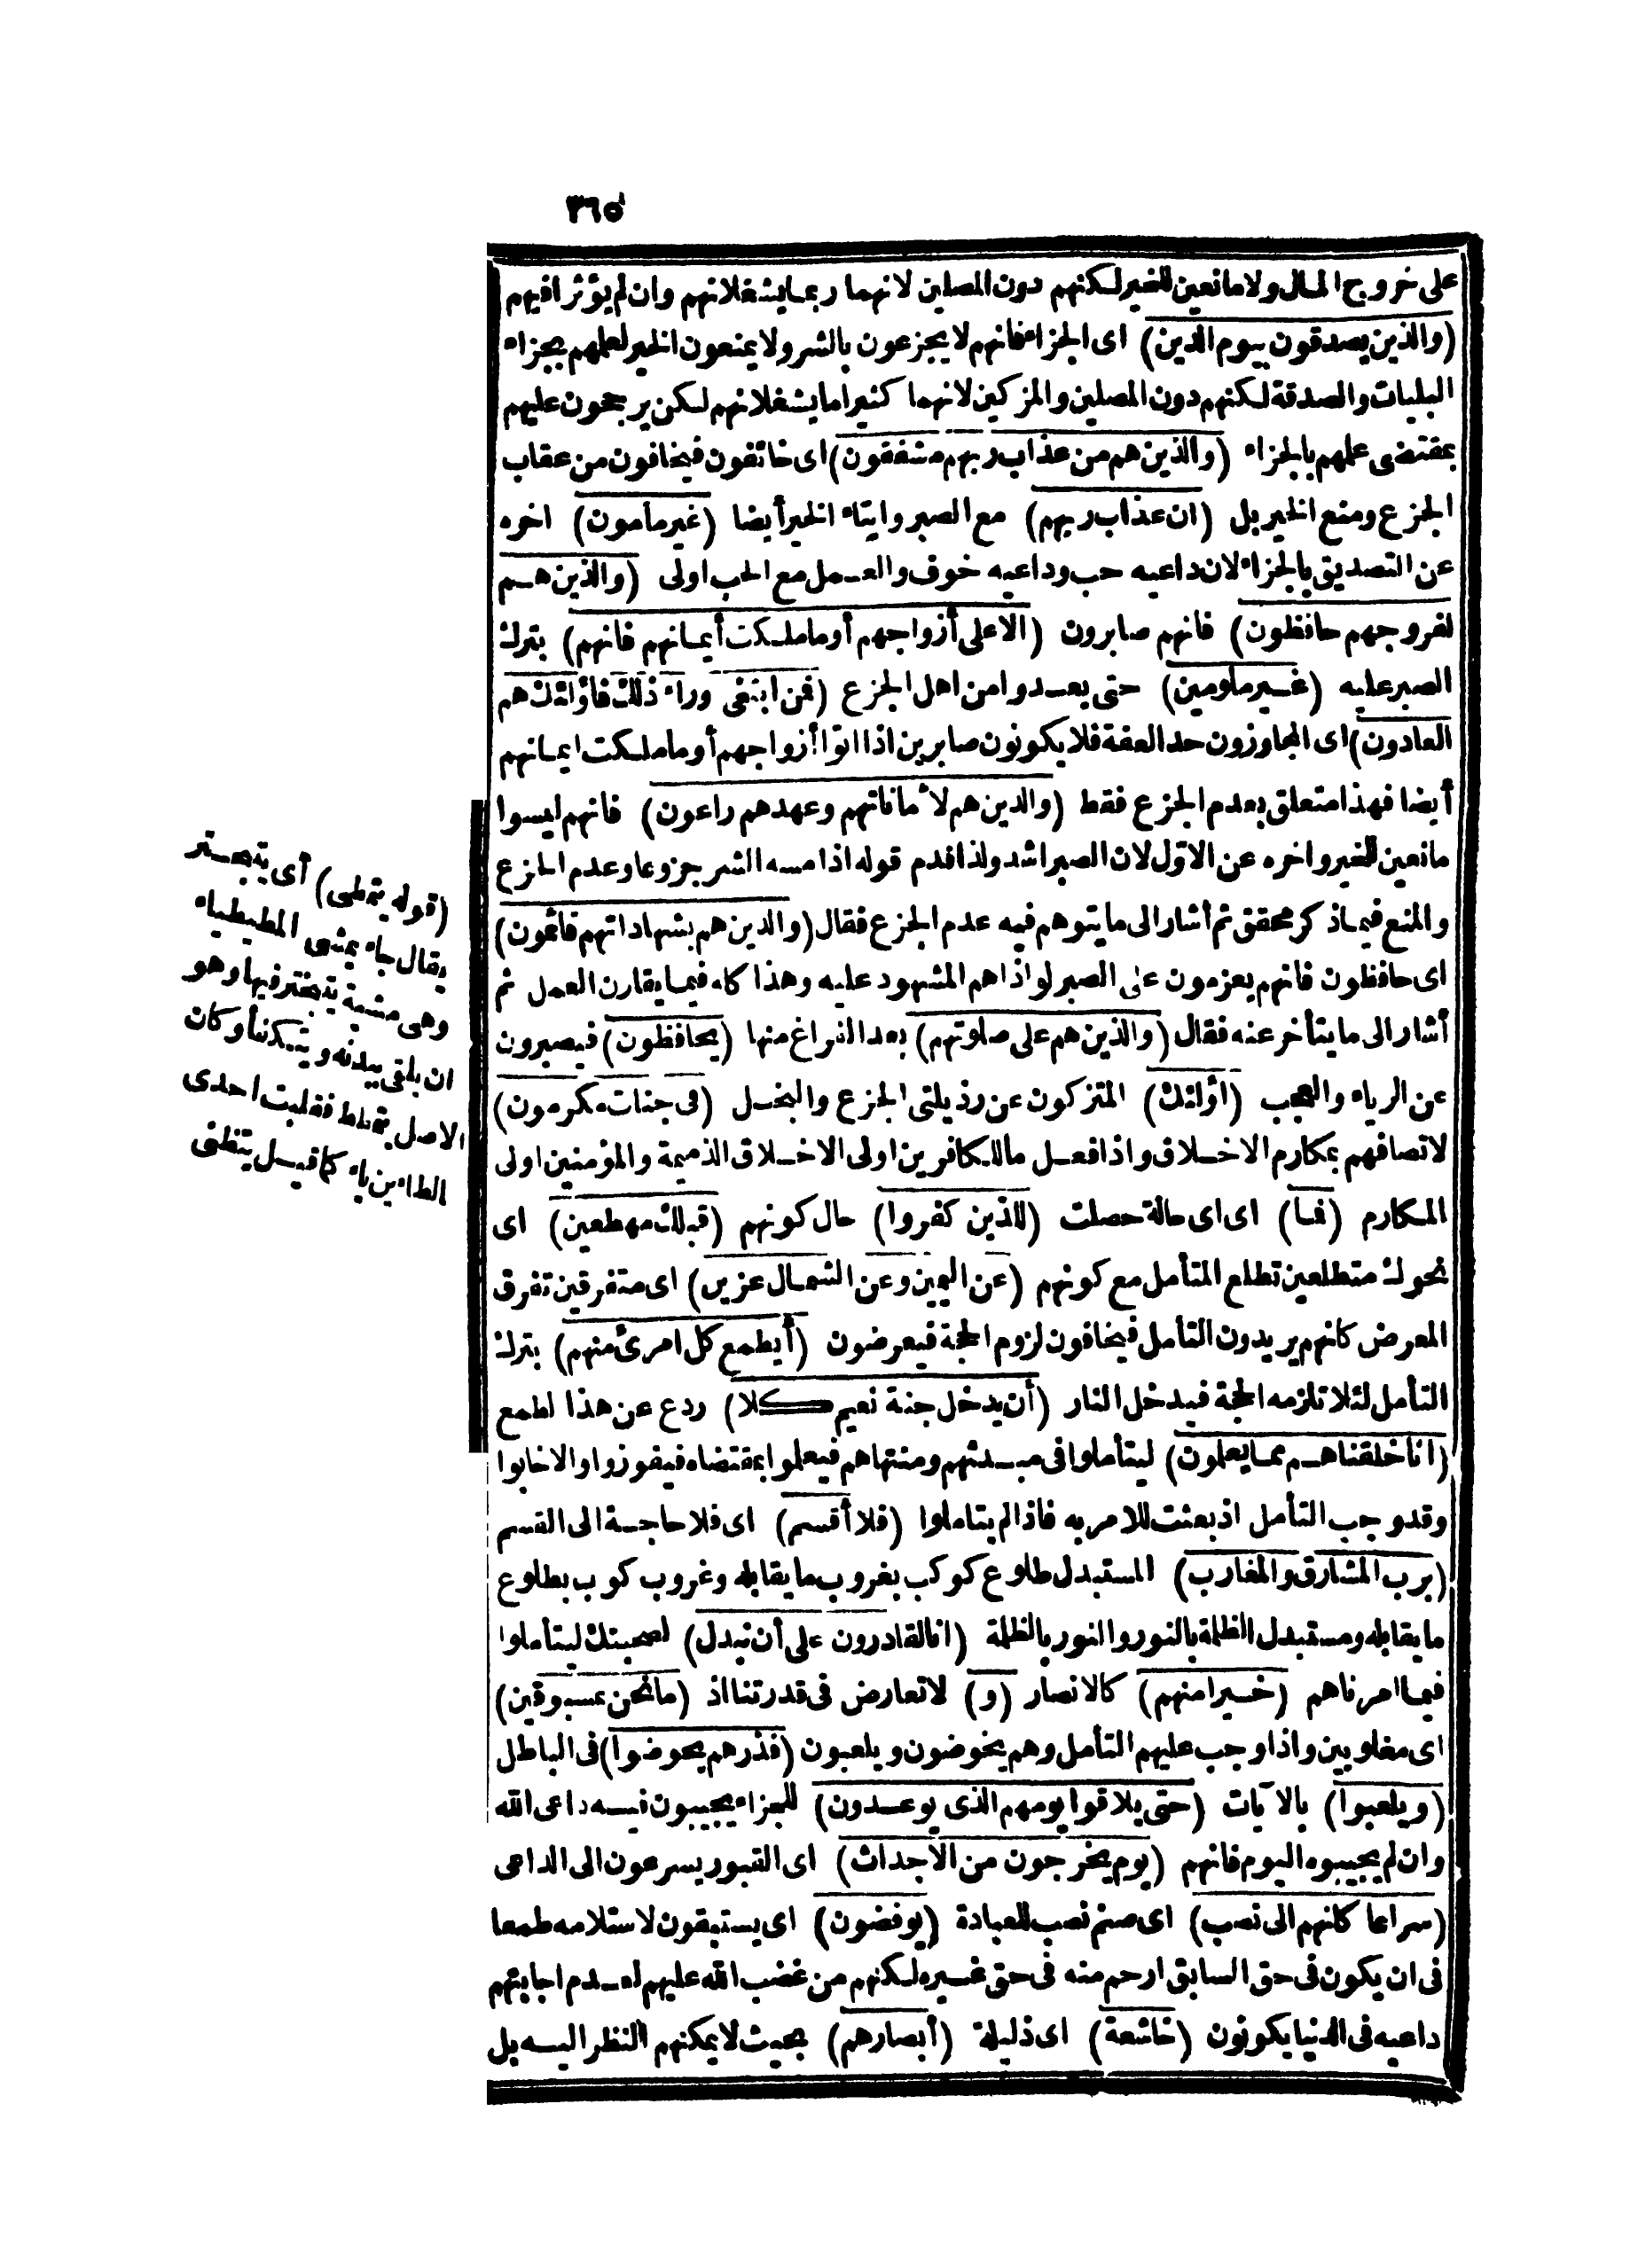 ٣٦٥
على خروج المال ولا مانعين للخير لكنهم دون المصلين لانهما ربما يشغلانهم وان لم يؤثرا فيهم
(والذين يصدقون بيوم الدين) اى الجزاء فانهم لا يجزعون بالشر ولا يمنعون الخير لعلمهم بجزاء
البليات والصدقة لكنهم دون المصلين والمزكين لانهما كثيرا ما يشغلانهم لكن يرجعون عليهم
بمقتضى علمهم بالجزاء (والذين هم من عذاب ربهم مشفقون) اى خائفون فيخافون من عقاب
الجزع ومنع الخير بل (ان عذاب ربهم) مع الصبر وايتاء الخير أيضا (غير مأمون) اخره
عن التصديق بالجزاء لان داعيه حب وداعيه خوف والعمل مع الحب اولى (والذين هم
لفروجهم حافظون) فانهم صابرون (الا على أزواجهم أو ما ملكت أيمانهم فانهم) بترك
الصبر عليه (غير ملومين) حتى يعدوا من اهل الجزع (فمن ابتغى وراء ذلك فاولئك هم
العادون) اى المجاوزون حد العفة فلا يكونون صابرين اذا اتوا أزواجهم أو ما ملكت ايمانهم
أيضا فهذا متعلق بعدم الجزع فقط (والذين هم لأماناتهم وعهدهم راعون) فانهم ليسوا
مانعين للخير واخره عن الاول لان الصبر اشد ولذا قدم قوله اذا مسه الشر جزوعا وعدم الجزع
والمنع فيما ذكر محقق ثم أشار الى ما يتوهم فيه عدم الجزع فقال (والذين هم بشهاداتهم قائمون)
اى حافظون فانهم يعزمون على الصبر لو اذاهم المشهود عليه وهذا كله فيما يقارن العمل ثم
أشار الى ما يتأخر عنه فقال (والذين هم على صلوتهم) بعد الفراغ منها (يحافظون) فيصبرون
عن الرياء والعجب (اولئك) المتزكون عن رذيلتى الجزع والبخل (فى جنات مكرمون)
لاتصافهم بمكارم الاخلاق واذا فعل ما للكافرين اولى الاخلاق الذميمة والمؤمنين اولى
المكارم (فما) اى اى حالة حصلت (للذين كفروا) حال كونهم (قبلك مهطعين) اى
نحوك متطلعين تطلع المتأمل مع كونهم (عن اليمين وعن الشمال عزين) اى متفرقين تفرق
المعرض كانهم يريدون التأمل فيخافون لزوم الحجة فيعرضون (أيطمع كل امرئ منهم) بترك
التأمل لئلا تلزمه الحجة فيدخل النار (أن يدخل جنة نعيم كلا) ردع عن هذا لطمع
(انا خلقناهم مما يعلمون) ليتأملوا فى مبدئهم ومنتهاهم فيعلموا بمقتضاه فيفوزوا والا خابوا
وقد وجب التأمل اذ بعثت للامر به فاذا لم يتاملوا (فلا أقسم) اى فلا حاجة الى القسم
(برب المشارق والمغارب) المستبدل طلوع كوكب بغروب ما يقابله وغروب كوكب بطلوع
ما يقابله ومستبدل الظلمة بالنور والنور بالظلمة (انا لقادرون على أن نبدل) لصحبتك ليتأملوا
فيما امرناهم (خيرا منهم) كالانصار (و) لا تعارض فى قدرتنا اذ (ما نحن بمسبوقين)
اى مغلوبين واذا وجب عليهم التأمل وهم يخوضون ويلعبون (فذرهم يخوضوا) فى الباطل
(ويلعبوا) بالآيات (حتى يلاقوا يومهم الذى يوعدون) للجزاء يجيبون فيه داعى الله
وان لم يجيبوه اليوم فانهم (يوم يخرجون من الاجداث) اى القبور يسرعون الى الداعى
(سراعا كانهم الى نصب) اى صنم نصب للعبادة (يوفضون) اى يستبقون لاستلامه طمعا
فى ان يكون فى حق السابق ارحم منه فى حق غيره لكنهم من غضب الله عليهم لعدم اجابتهم
داعيه فى الدنيا يكونون (خاشعة) اى ذليلة (أبصارهم) بحيث لا يمكنهم النظر اليه بل
(قوله يتمطى) أى يتبختر
يقال جاء يمشى المطيطياء
وهى مشية يتبختر فيها وهو
ان يلقى بيدنه ويتكفأ وكان
الاصل يتمطط فقلبت احدى
الطاءين ياء كما قيل يتظنى